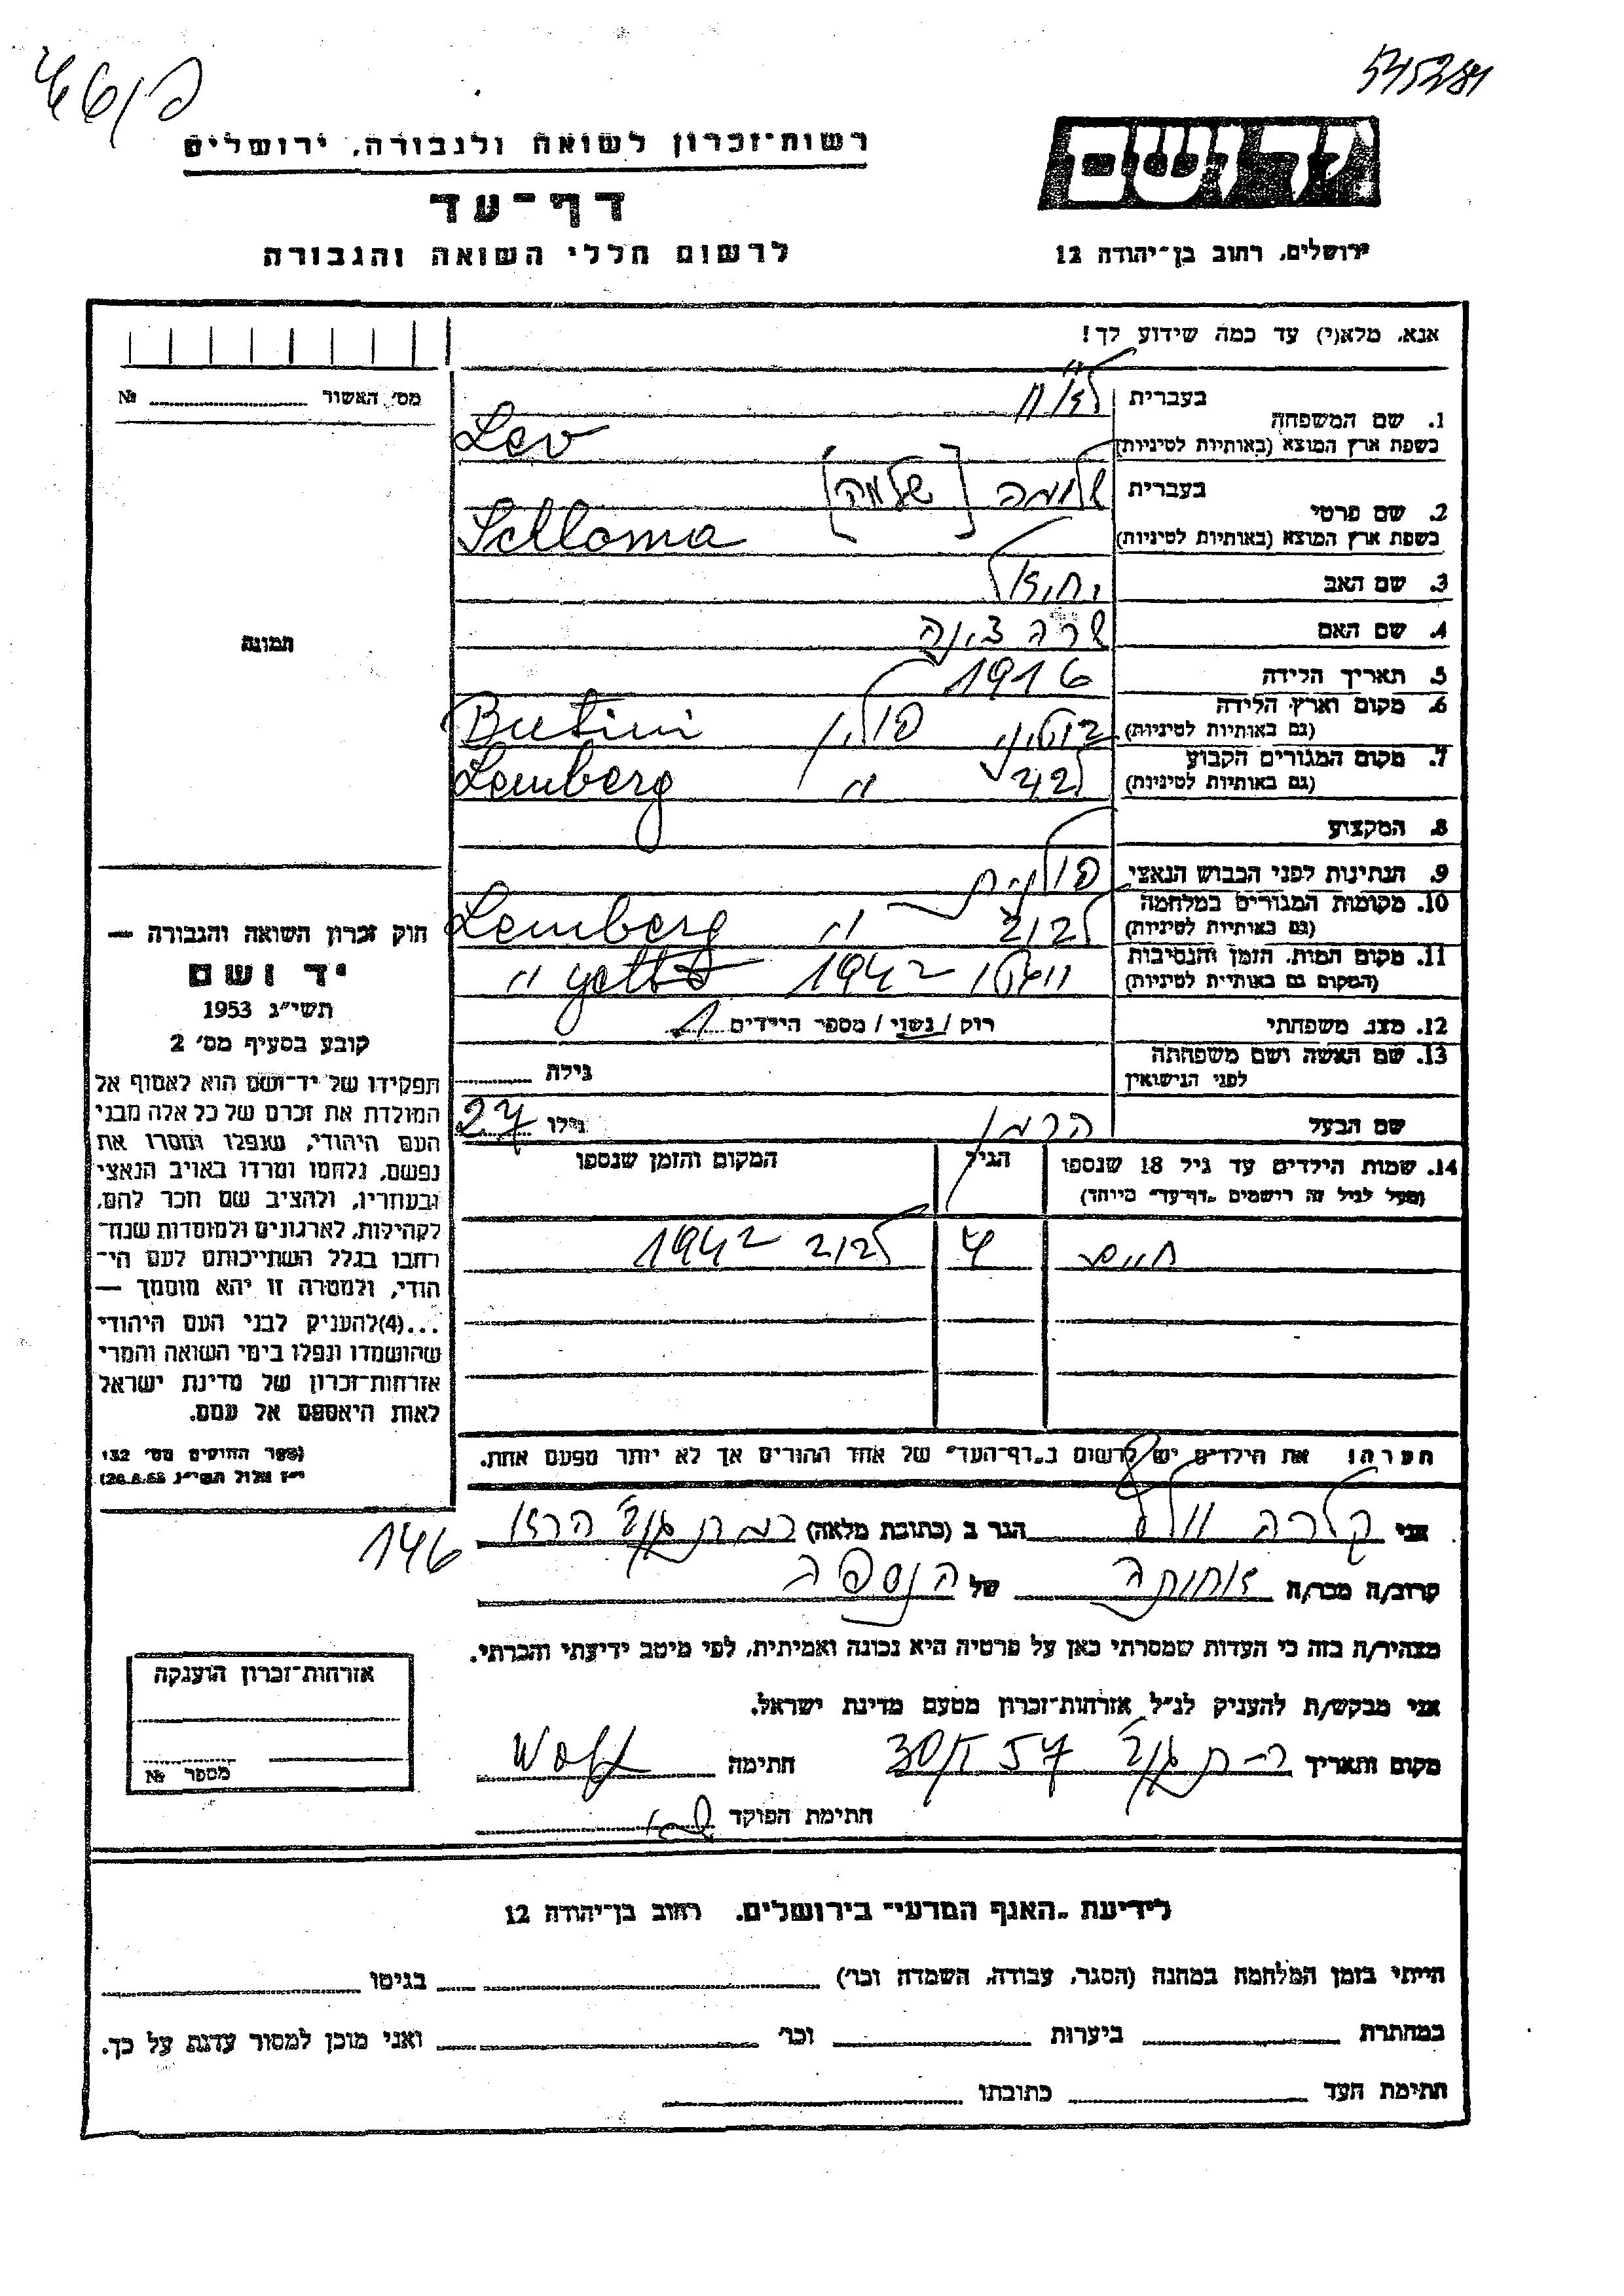 545281
רשות־זכרון לשואה ולגבורה, ירושלים
דף־עד
לרשום חללי השואה והגבורה
ירושלים, רחוב בן־יהודה 12
אנא, מלא(י) עד כמה שידוע לך!
מס׳ האשור №
1. שם המשפחה
בעברית
כשפת ארץ המוצא (באותיות לטיניות) Lev
2. שם פרטי
בעברית שלומה [שלמה]
כשפת ארץ המוצא (באותיות לטיניות) Schloma
3. שם האב יחזאל
4. שם האם שרה צינה
5. תאריך הלידה 1916
6. מקום וארץ הלידה
(גם באותיות לטיניות) פולין
7. מקום המגורים הקבוע
(גם באותיות לטיניות) " Lemberg
8. המקצוע
9. הנתינות לפני הכבוש הנאצי פולנית
10. מקומות המגורים במלחמה
(גם באותיות לטיניות) לבוב " Lemberg
11. מקום המות, הזמן והנסיבות
(המקום גם באותיות לטיניות) 1942 getto "
12. מצב משפחתי רוק / נשוי / מספר הילדים 1
13. שם האשה ושם משפחתה
לפני הנישואין
גילה
שם הבעל הרמן גילו 27
14. שמות הילדים עד גיל 18 שנספו
(מעל לגיל זה רישמים „דף־עד״ מיוחד)
הגיל
המקום והזמן שנספו
חיים 4 לבוב 1942
הערה: את הילדים יש לרשום ב„דף־העד״ של אחד ההורים אך לא יותר מפעם אחת.
תמונה
חוק זכרון השואה והגבורה —
יד ושם
תשי״ג 1953
קובע בסעיף מס׳ 2
תפקידו של יד־ושם הוא לאסוף אל
המולדת את זכרם של כל אלה מבני
העם היהודי, שנפלו ומסרו את
נפשם, נלחמו ומרדו באויב הנאצי
ובעוזריו, ולהציב שם וזכר להם,
לקהילות, לארגונים ולמוסדות שנח־
רבו בגלל השתייכותם לעם הי־
הודי, ולמטרה זו יהא מוסמך —
...(4)להעניק לבני העם היהודי
שהושמדו ונפלו בימי השואה והמרי
אזרחות־זכרון של מדינת ישראל
לאות היאספם אל עמם.
(ספר החוקים מס׳ 132
י״ז אלול תשי״ג 28.8.53)
אני קלרה וולף הגר ב (כתובת מלאה) רמת גן הרוא
146
קרוב/ה מכר/ה אחותה של הנספה
מצהיר/ה בזה כי העדות שמסרתי כאן על פרטיה היא נכונה ואמיתית, לפי מיטב ידיעתי והכרתי.
אני מבקש/ת להעניק לנ״ל אזרחות־זכרון מטעם מדינת ישראל.
מקום ותאריך ר–ת גן 30/I 57 חתימה Wolf
חתימת הפוקד
אזרחות־זכרון הוענקה
מספר №
לידיעת „האגף המדעי״ בירושלים, רחוב בן־יהודה 12
הייתי בזמן המלחמה במחנה (הסגר, עבודה, השמדה וכו׳) בגיטו
במחתרת ביערות וכו׳ ואני מוכן למסור עדות על כך.
חתימת העד כתובתו